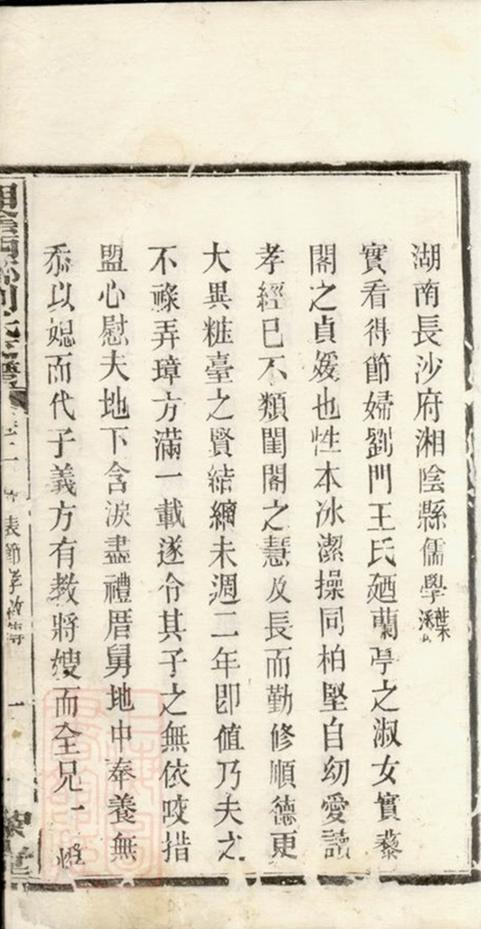 湖南長沙府湘陰縣儒學葉
實看得節婦劉門王氏廼蘭亭之淑女實藜
閣之貞媛也性本冰潔操同柏堅自幼愛讀
孝經已不類閨閣之慧及長而勤修順德更
大異粧臺之賢結縭未週二年即值乃夫之
不祿弄璋方滿一載遂令其子之無依咬措
盟心慰夫地下含淚盡禮厝舅地中奉養無
忝以媳而代子義方有教將嫂而全兄一
湘陰 劉氏 卷二 表節孝 一